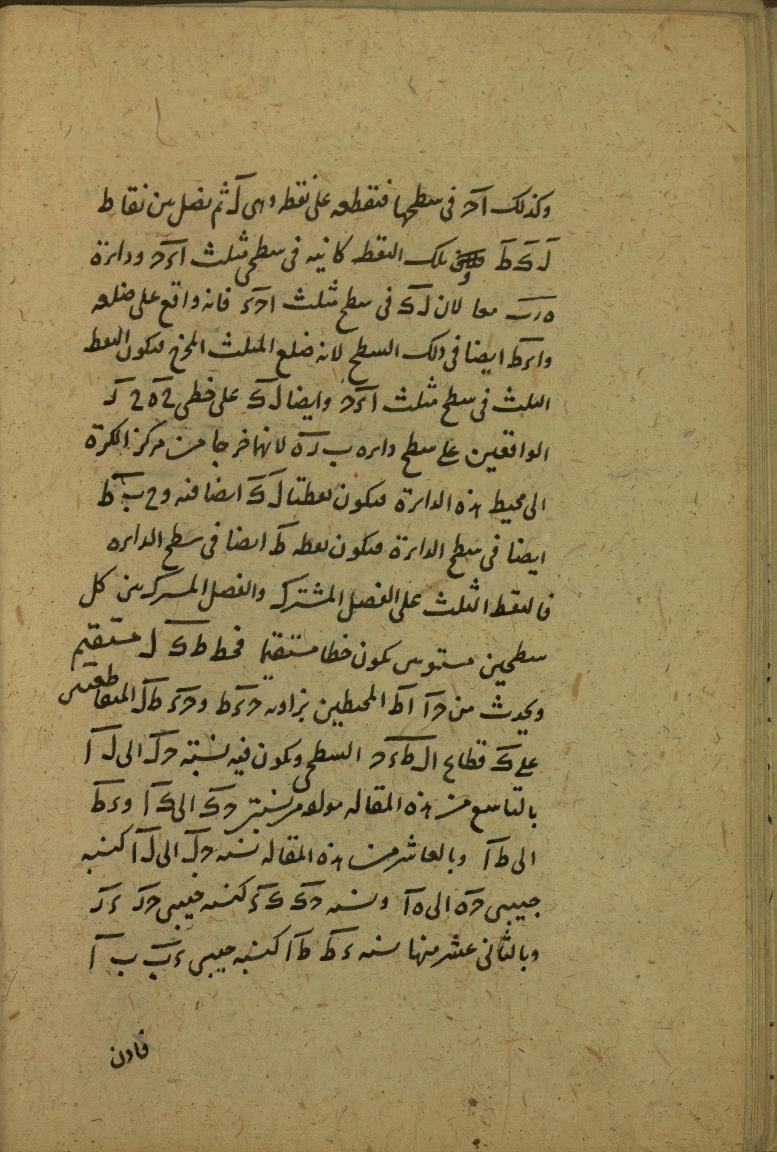 وكذلك اح في سطحها فتقطعه على نقطه وهى ل ثم نصل بين نقاط
ل ك ط تلك النقط كانيه في سطحى مثلث اءح ودائرة
ه ر ب معا لان ل ك في سطح مثلث احء فانه واقع على ضلعه
واءط ايضا في ذلك السطح لانه ضلع المثلث المخرج فتكون النقط
الثلث في سطح مثلث اءح وايضا ل ك على خطى ح ه ح ر
الواقعين على سطح دايره ب ر ه لانهما خرجا من مركز الكرة
الى محيط هذه الدايرة فتكون نقطتا ل ك ايضا فيه و ح ب ط
ايضا في سطح الدايرة فتكون نقطه ط ايضا في سطح الدايره
فالنقط الثلث على الفصل المشترك والفصل المشترك بين كل
سطحين مستويين يكون خطا مستقيما فخط ط ك ل مستقيم
ويحدث من ح ا اط المحيطين بزاويه ح ء ط و ح ء ط ل المتقاطعين
على ك قطاع ال ط ء ح السطحى ويكون فيه نسبته ح ل الى ل ا
بالتاسع من هذه المقاله مولفه من نسبتى ح ك الى ك ا و ء ط
الى ط ا وبالعاشر من هذه المقاله نسبه ح ل الى ل ا كنسبه
جيبى ح ه الى ه ا ونسبه ح ك ك ء كنسبه جيبى ح ر ر ء
وبالثانى عشر منها نسبه ء ط ط ا كنسبه جيبى ء ب ب ا
فاذن